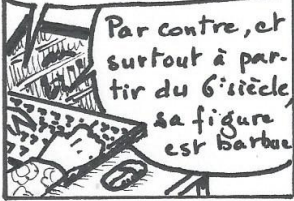 Par contre, et
surtout à par-
tir du 6e siècle,
sa figure
est barbue